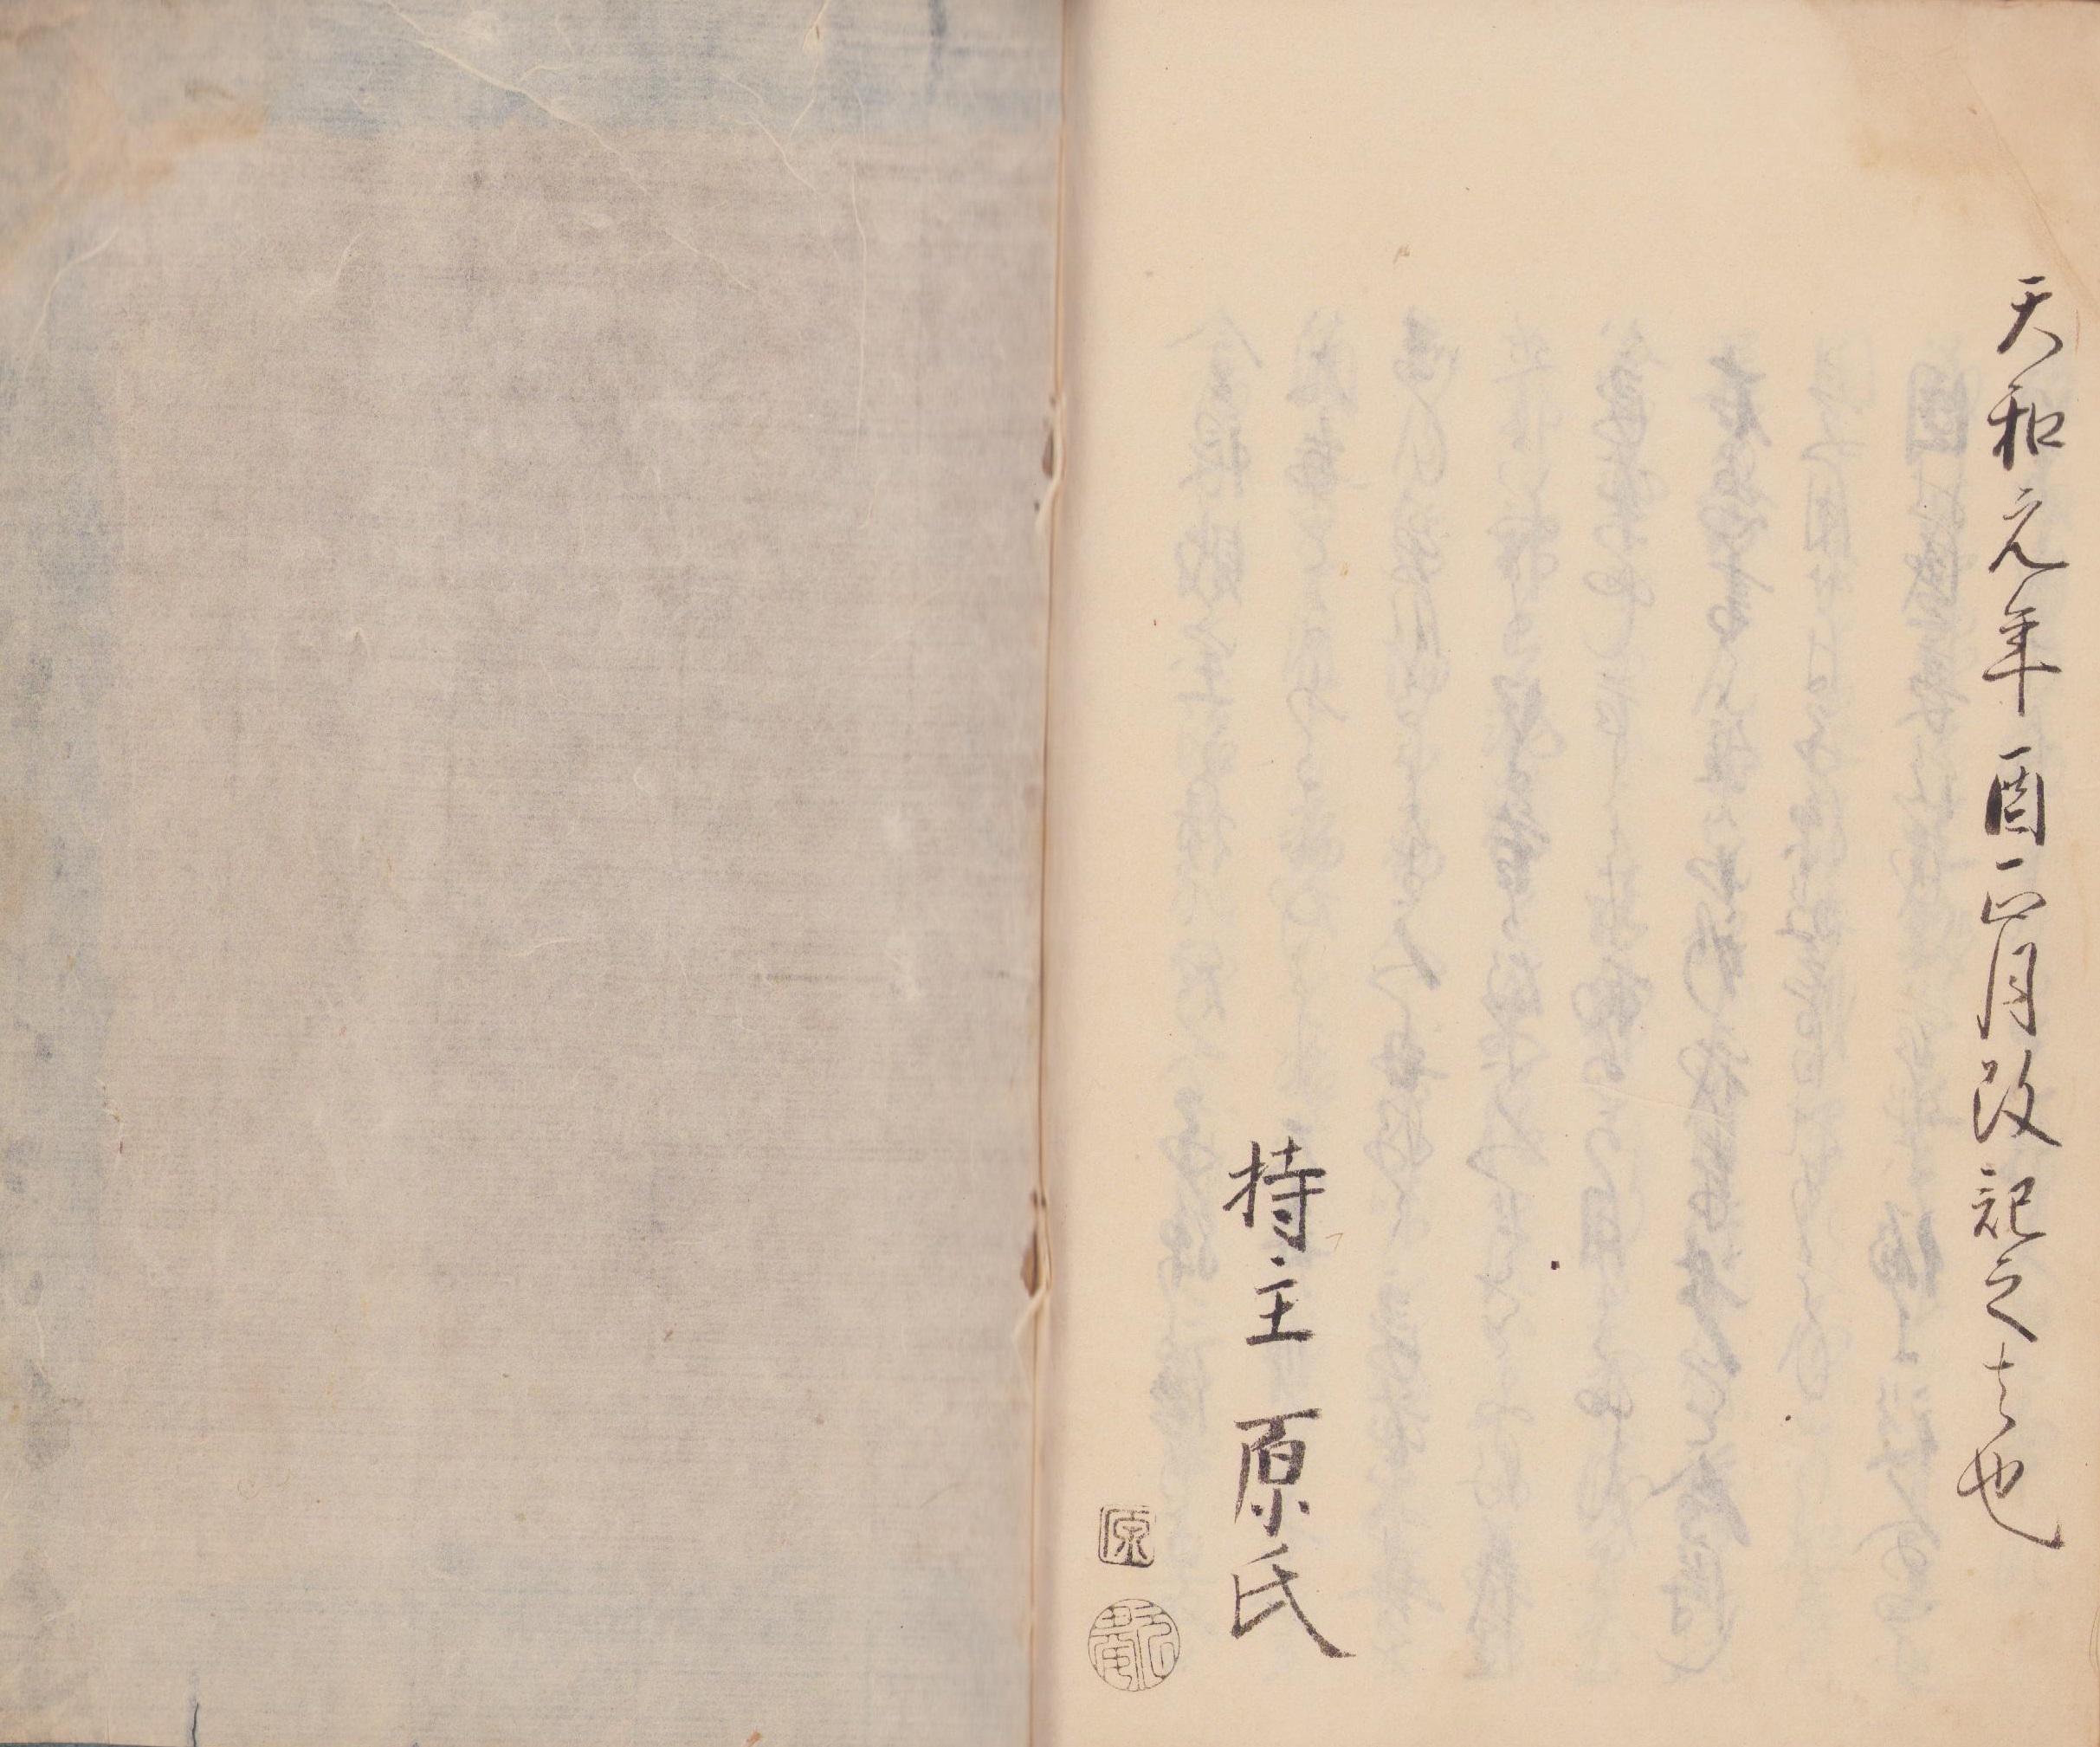 天和元年酉正月改記之者也
持主原氏
原